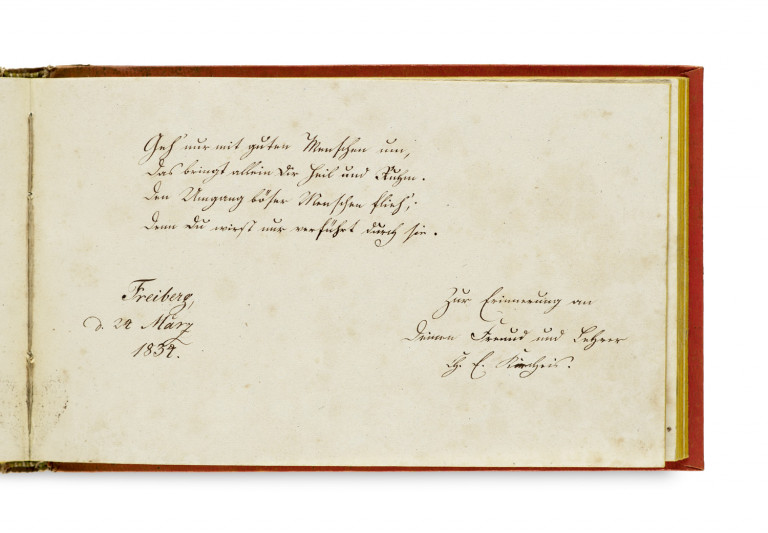 Geh' nur mit guten Menschen um,
Das bringt allein Dir Heil und Ruhm.
Den Umgang böser Menschen flieh',
Denn Du wirst nur verführt durch sie.
Freiberg,
d. 24 März
1834.
Zur Erinnerung an
Deinen Freund und Lehrer
E.